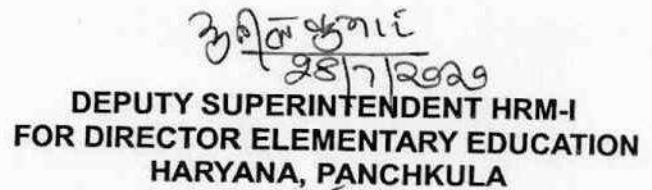 DEPUTY SUPERINTENDENT HRM-I
FOR DIRECTOR ELEMENTARY EDUCATION
HARYANA, PANCHKULA